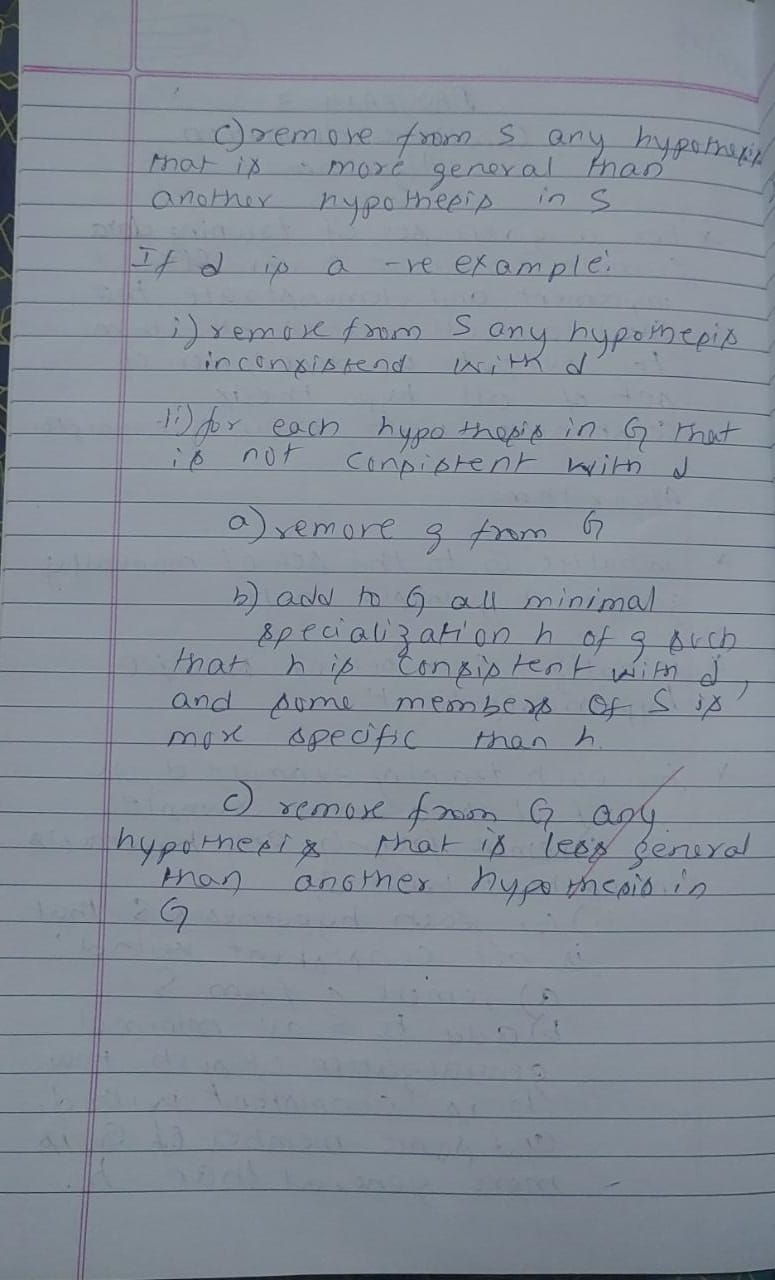 c) remove from S any hypothesis
that is more general than
another hypothesis in S
If d is a -ve example.
i) remove from S any hypothesis
inconsistend with d
ii) for each hypothesis in G that
is not consistent with d
a) remove g from G
b) add to G all minimal
specialization h of g such
that h is consistent with d,
and some members of S is
more specific than h.
c) remove from G any
hypothesis that is less general
than another hypothesis in
G